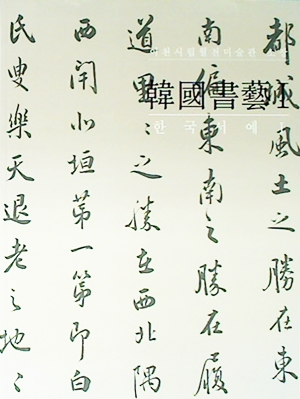 이천시립월전미술관
韓國書藝I
한국서예 I
都城風土之勝在東
南偏東南之勝在履
道里〻之勝在西北隅
西閈北垣第一第即白
氏叟樂天退老之地〻